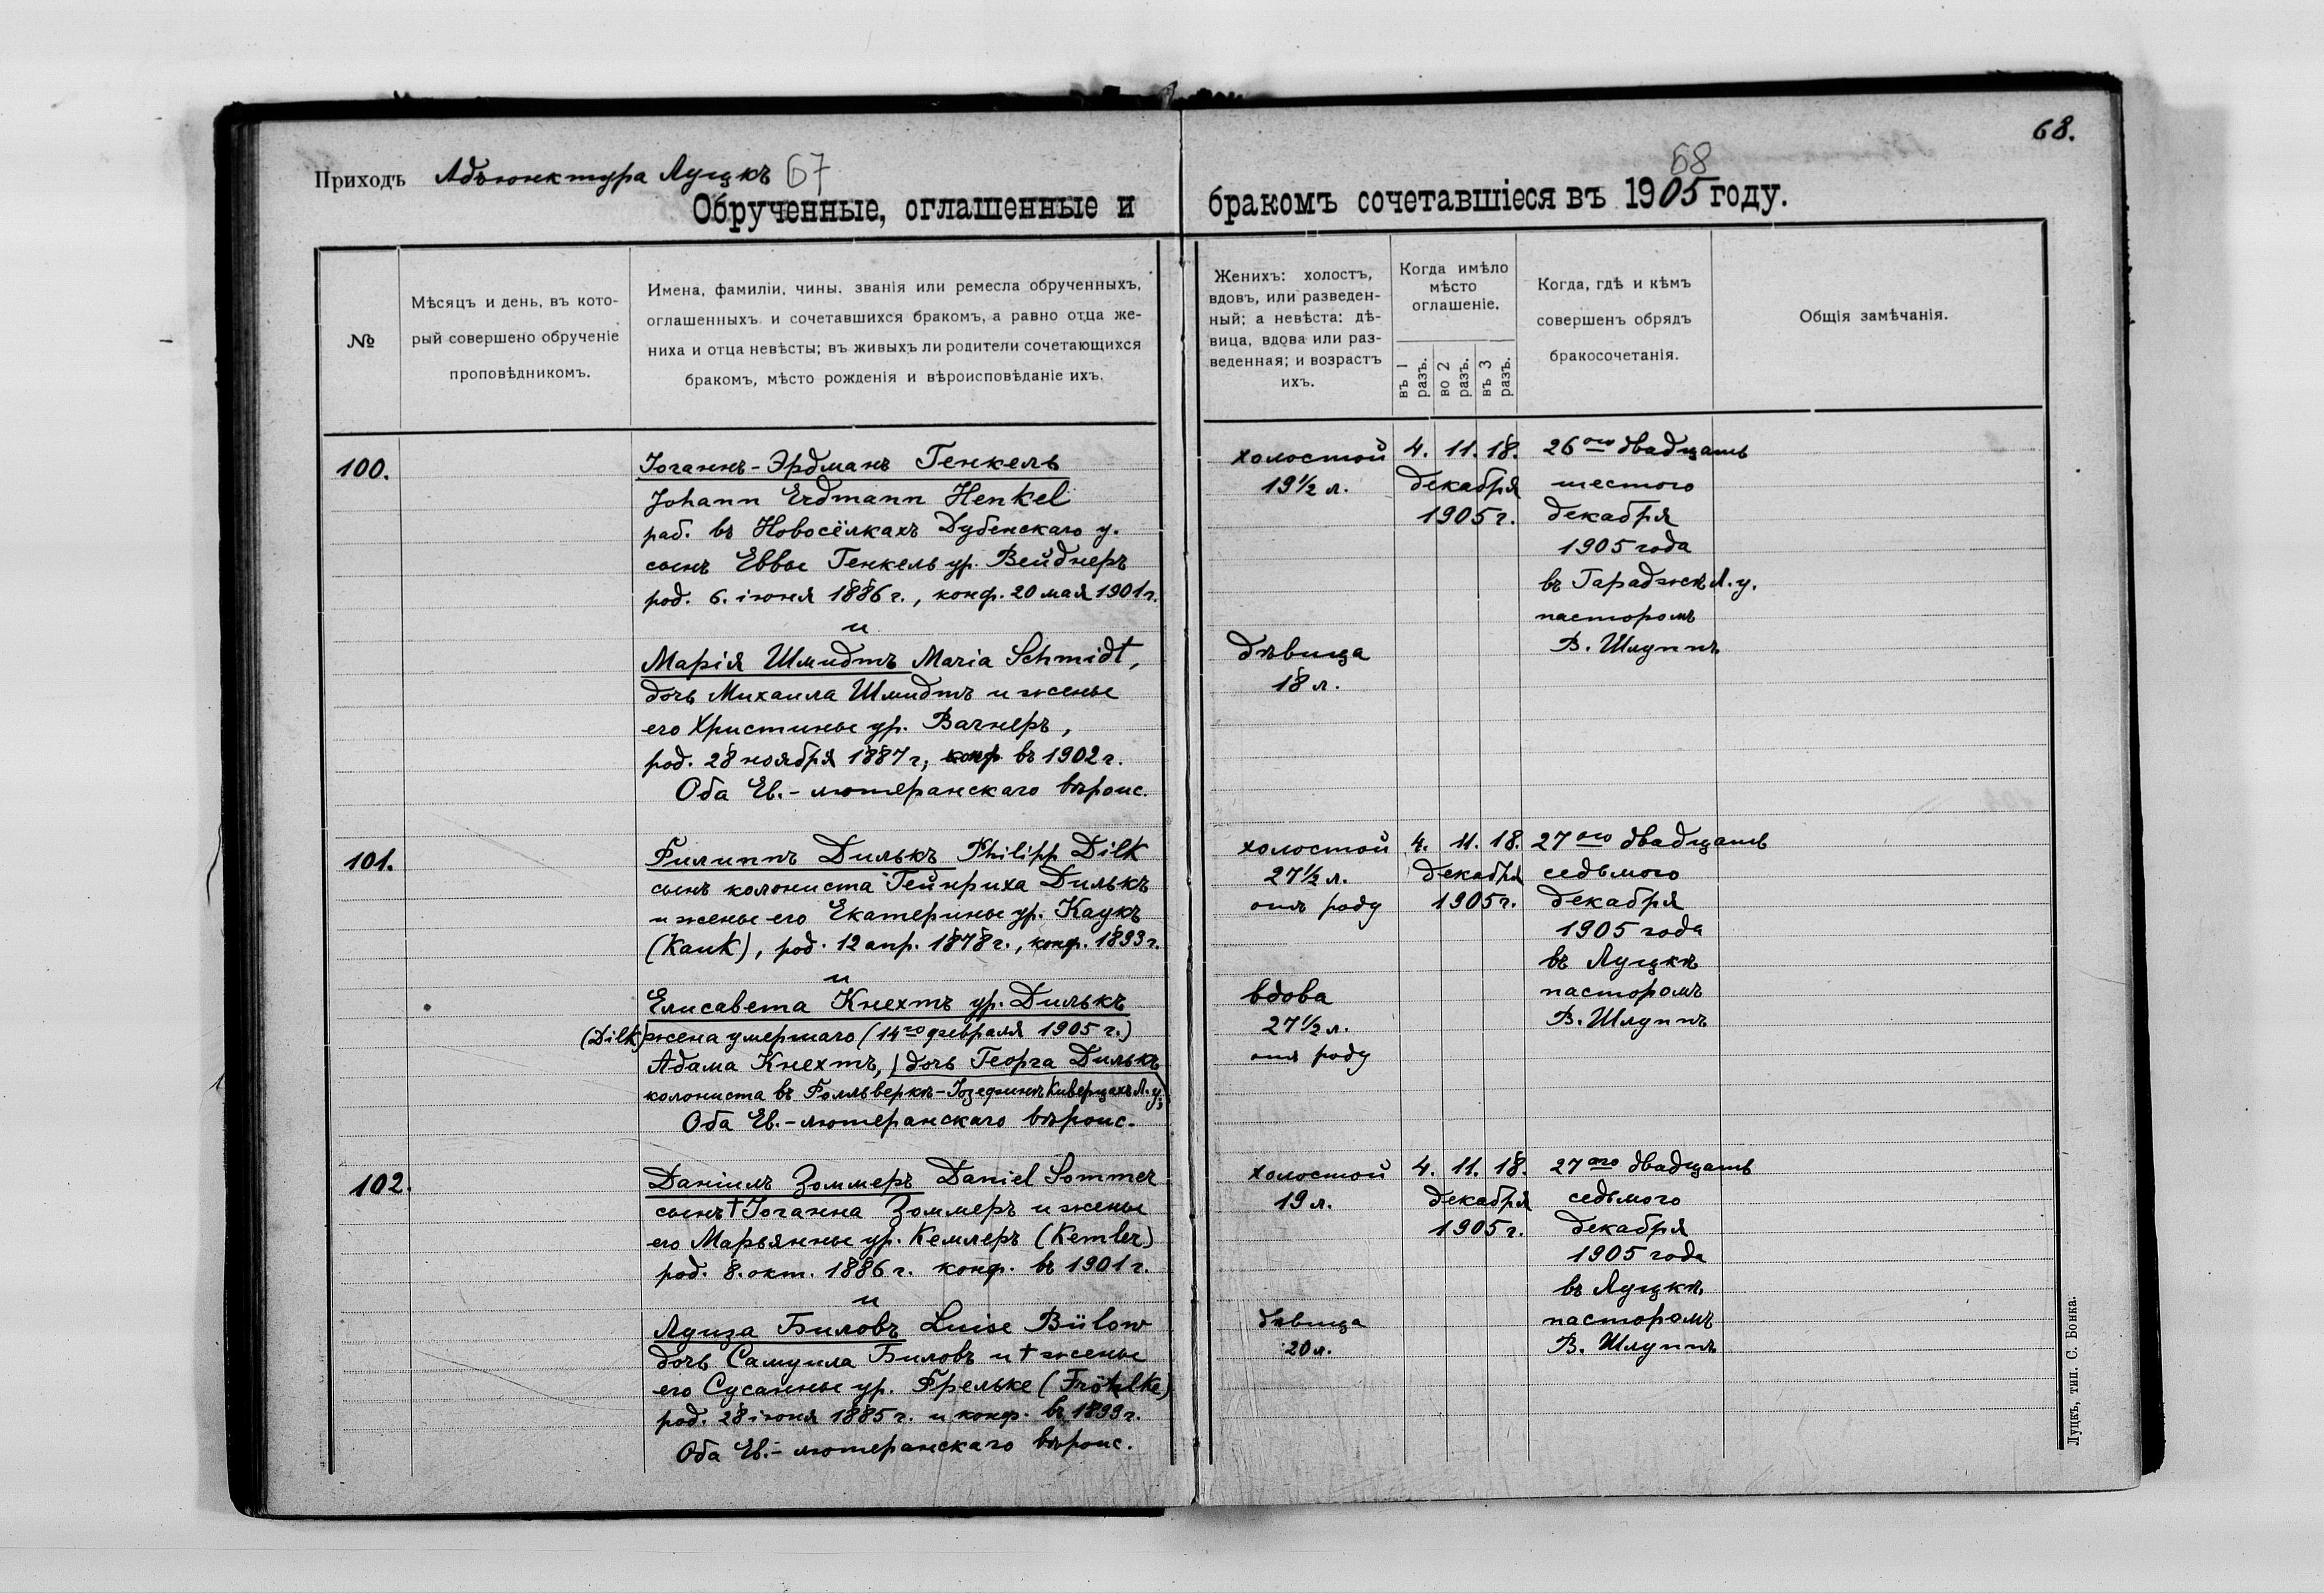 68.
Приходъ Адъюнктура Луцкъ 67
68
Обрученные, оглашенные и бракомъ сочетавшіеся въ 1905 году.
№
Мѣсяцъ и день, въ кото-
рый совершено обрученіе
проповѣдникомъ.
Имена, фамиліи, чины, званія или ремесла обрученныхъ,
оглашенныхъ и сочетавшихся бракомъ, а равно отца же-
ниха и отца невѣсты; въ живыхъ ли родители сочетающихся
бракомъ, мѣсто рожденія и вѣроисповѣданіе ихъ.
Женихъ: холостъ,
вдовъ, или разведен-
ный; а невѣста: дѣ-
вица, вдова или раз-
веденная; и возрастъ
ихъ.
Когда имѣло
мѣсто
оглашеніе.
въ 1 разъ.
во 2 разъ.
въ 3 разъ.
Когда, гдѣ и кѣмъ
совершенъ обрядъ
бракосочетанія.
Общія замѣчанія.
100.
Іоганнъ-Эрдманъ Генкель
Johann Erdmann Henkel
раб. въ Новосёлкахъ Дубенскаго у.
сынъ Еввы Генкель ур. Вейднеръ
род. 6. іюня 1886 г., конф. 20 мая 1901 г.
и
Марія Шмидтъ Maria Schmidt,
дочь Михаила Шмидтъ и жены
его Христины ур. Вагнеръ,
род. 28 ноября 1887 г, конф въ 1902 г.
Оба Ев.-лютеранскаго вѣроис.
холостой
19½ л.
дѣвица
18 л.
4. 11. 18.
декабря
1905 г.
26ого двадцать
шестого
декабря
1905 года
въ Гараджѣ Л. у.
пасторомъ
В. Шлуппъ
101.
Филиппъ Дилькъ Philipp Dilk
сынъ колониста Гейнриха Дилькъ
и жены его Екатерины ур. Каукъ
(Kauk), род. 12 апр. 1878 г., конф. 1893 г.
и
Елисавета Кнехтъ ур. Дилькъ
(Dilk) жена умершаго (14го февраля 1905 г.)
Адама Кнехтъ, дочь Георга Дилькъ
колониста въ Фольверкѣ-Іозефинѣ Киверцахъ Л. у.;
Оба Ев.-лютеранскаго вѣроис.
холостой
27½ л.
отъ роду
вдова
27½ л.
отъ роду
4. 11. 18.
декабря
1905 г.
27ого двадцать
седьмого
декабря
1905 года
въ Луцкѣ
пасторомъ
В. Шлуппъ
102.
Даніилъ Зоммеръ Daniel Sommer
сынъ † Іоганна Зоммеръ и жены
его Марьянны ур. Кемлеръ (Kemler)
род. 8. окт. 1886 г. конф. въ 1901 г.
и
Луиза Биловъ Luise Bülow
дочь Самуила Биловъ и † жены
его Сусанны ур. Фрельке (Fröhlke)
род. 28 іюня 1885 г. и конф. въ 1899 г.
Оба Ев.-лютеранскаго вѣроис.
холостой
19 л.
дѣвица
20 л.
4. 11. 18.
декабря
1905 г.
27ого двадцать
седьмого
декабря
1905 года
въ Луцкѣ
пасторомъ
В. Шлуппъ
Луцкъ, тип. С. Бонка.